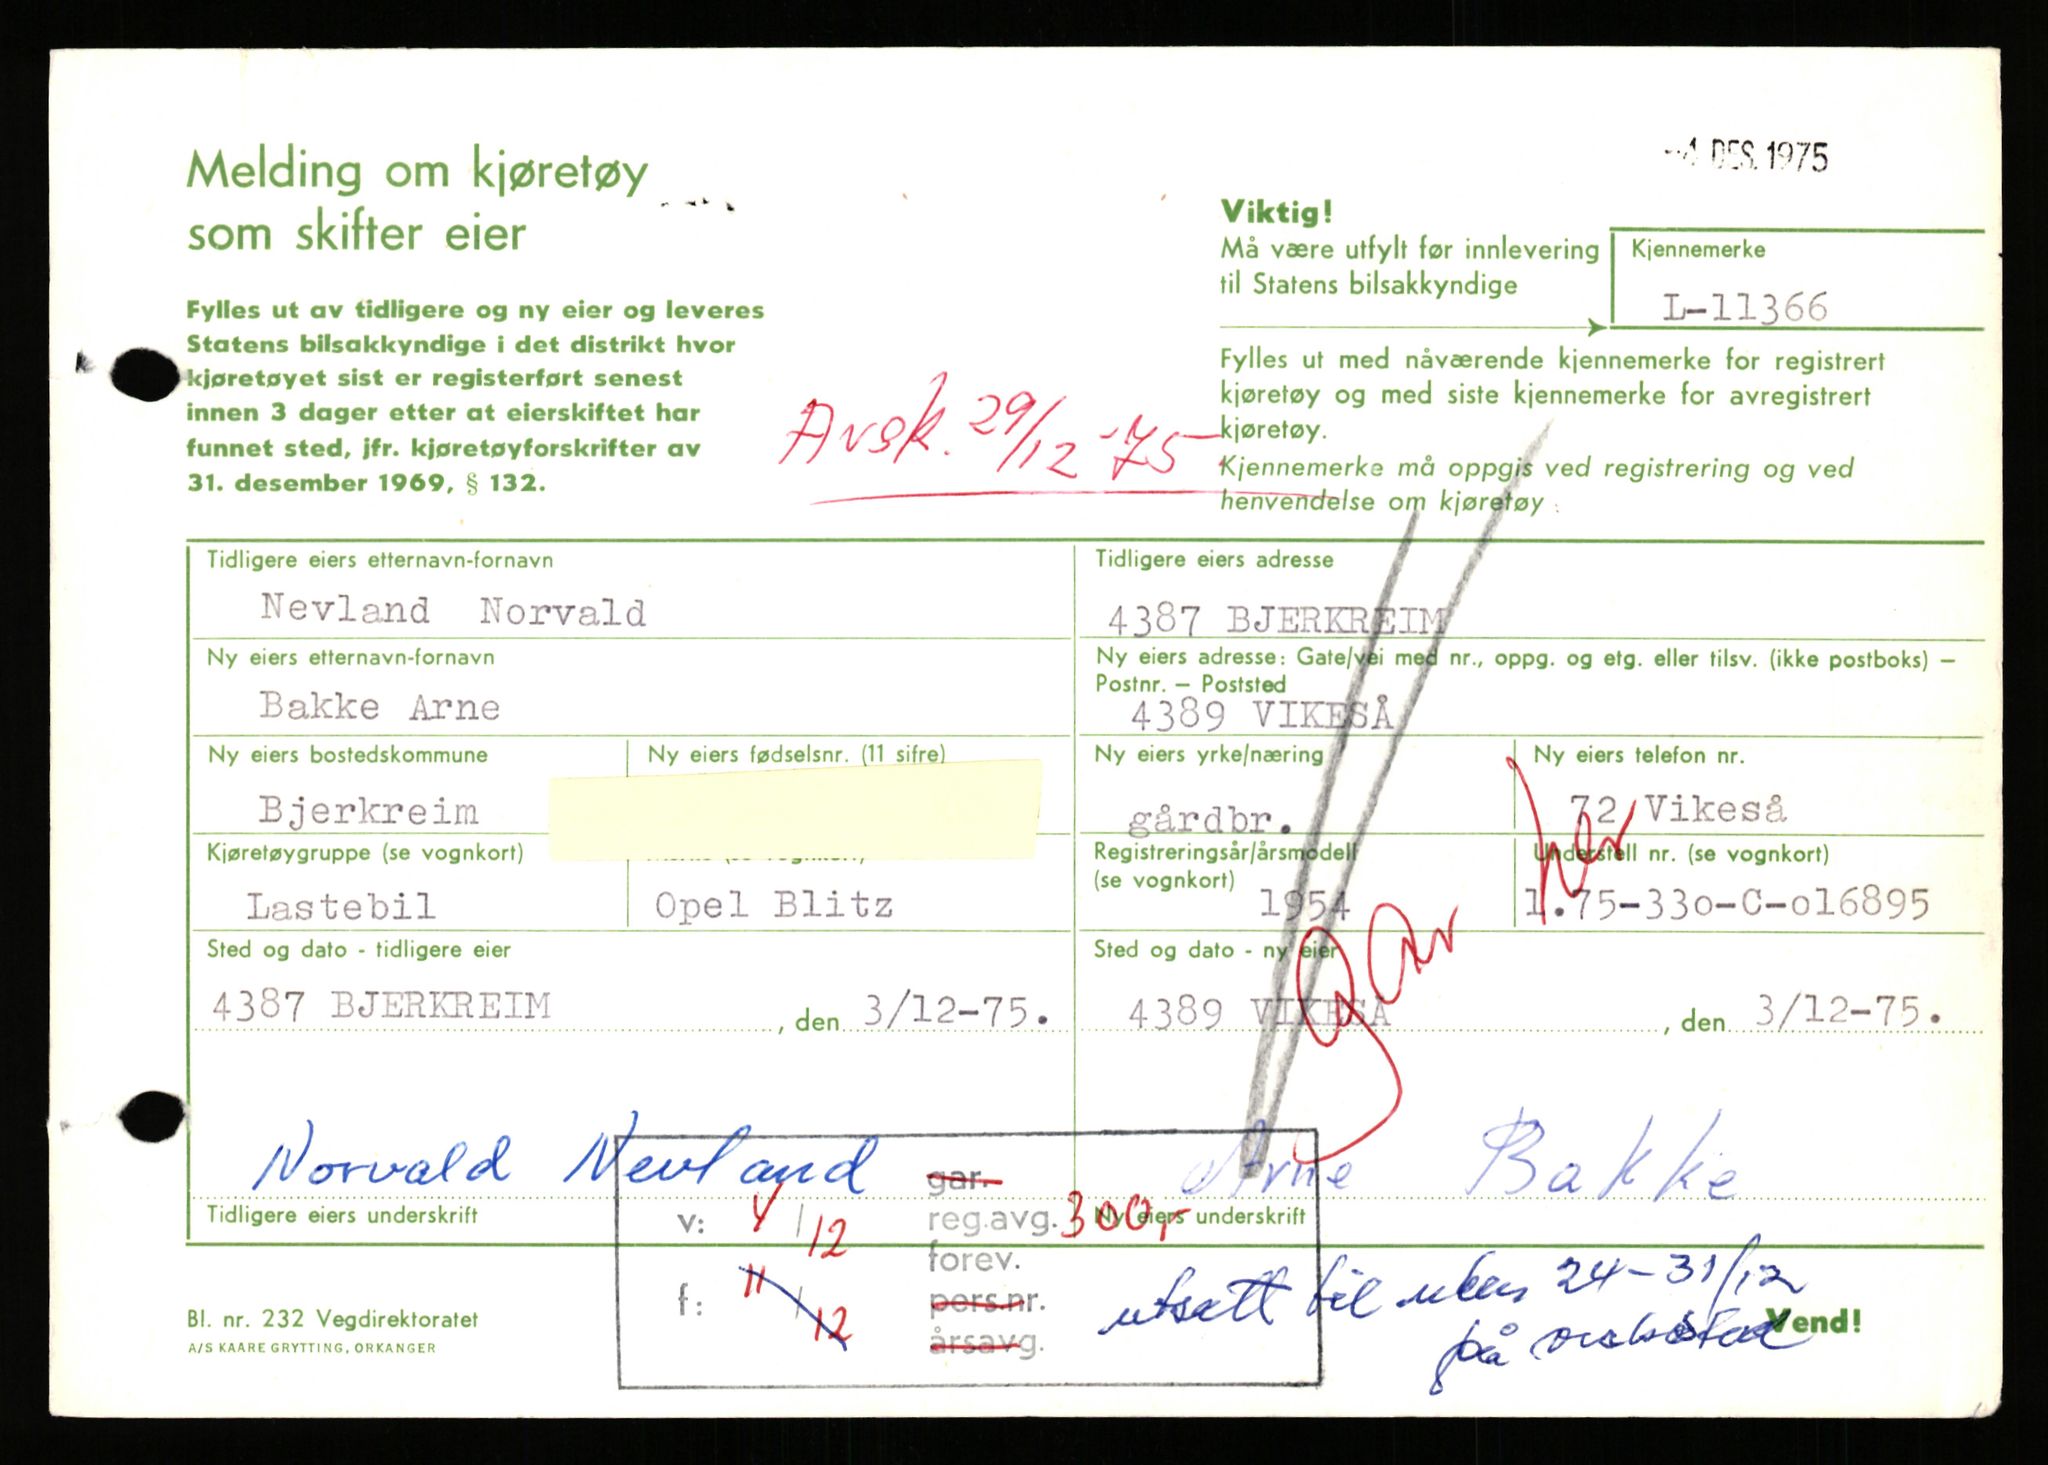 -4 DES. 1975
Melding om kjøretøy
som skifter eier
Viktig!
Må være utfylt før innlevering
til Statens bilsakkyndige
Kjennemerke
L-11366
Fylles ut av tidligere og ny eier og leveres
Statens bilsakkyndige i det distrikt hvor
kjøretøyet sist er registerført senest
innen 3 dager etter at eierskiftet har
funnet sted, jfr. kjøretøyforskrifter av
31. desember 1969, § 132.
Avsk. 29/12-75
Fylles ut med nåværende kjennemerke for registrert
kjøretøy og med siste kjennemerke for avregistrert
kjøretøy.
Kjennemerke må oppgis ved registrering og ved
henvendelse om kjøretøy.
Tidligere eiers etternavn-fornavn
Nevland Norvald
Tidligere eiers adresse
4387 BJERKREIM
Ny eiers etternavn-fornavn
Bakke Arne
Ny eiers adresse: Gate/vei med nr., oppg. og etg. eller tilsv. (ikke postboks) –
Postnr. – Poststed
4389 VIKESÅ
Ny eiers bostedskommune
Bjerkreim
Ny eiers fødselsnr. (11 sifre)
Ny eiers yrke/næring
gårdbr.
Ny eiers telefon nr.
72 Vikeså
Kjøretøygruppe (se vognkort)
Lastebil
Opel Blitz
Registreringsår/årsmodell
(se vognkort)
1954
Understell nr. (se vognkort)
1.75-33o-C-o16895
gar her
Sted og dato - tidligere eier
4387 BJERKREIM, den 3/12-75.
Sted og dato - ny eier
4389 VIKESÅ, den 3/12-75.
Norvald Nevland
Arne Bakke
Tidligere eiers underskrift
Ny eiers underskrift
gar.
v: 4/12
reg.avg. 300,-
forev.
f: 11/12
pers.nr.
årsavg.
utsatt til uken 24-31/12
på
Bl. nr. 232 Vegdirektoratet
A/S KAARE GRYTTING, ORKANGER
Vend!